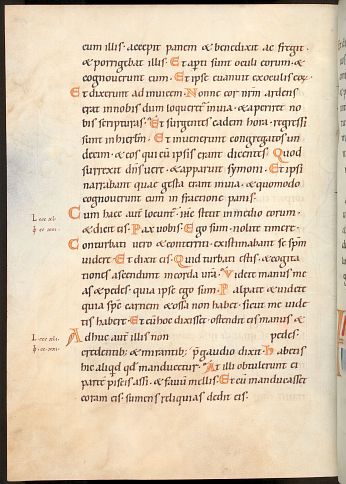 cum illis. accepit panem & benedixit ac fregit.
& porrigebat illis. Et apti sunt oculi eorum. &
cognouerunt eum. Et ipse euanuit ex oculis eoꝝ.
Et dixerunt ad inuicem. Nonne cor nrm ardens
erat in nobis dum loqueret in uia. & aperiret no
bis scripturas. Et surgentes eadem hora. regressi
sunt in hierlm. Et inuenerunt congregatos un
decim. & eos qui cu ipsis erant dicentes. Quod
surrexit dns uere. & apparuit symoni. Et ipsi
narrabant quae gesta erant in uia. & quomodo
cognouerunt eum in fractione panis.
Cum haec aut locunt. ihc stetit in medio eorum.
& dicit eis. Pax uobis. Ego sum nolite timere.
Conturbati uero & conterriti. existimabant se spm
uidere. Et dixit eis. Quid turbati estis. & cogita
tiones ascendunt in corda ura. Videte manus me
as & pedes. quia ipse ego sum. Palpate & uidete
quia sps carnem & ossa non habet. sicut me uide
tis habere. Et cu hoc dixisset. ostendit eis manus &
Adhuc aut illis non pedes.
credentib; & mirantib; p gaudio dixit. Habetis
hic aliqd qd manducetur. At illi obtulerunt ei
parte piscis assi. & fauu mellis. Et cu manducasset
coram eis. sumens reliquias dedit eis.